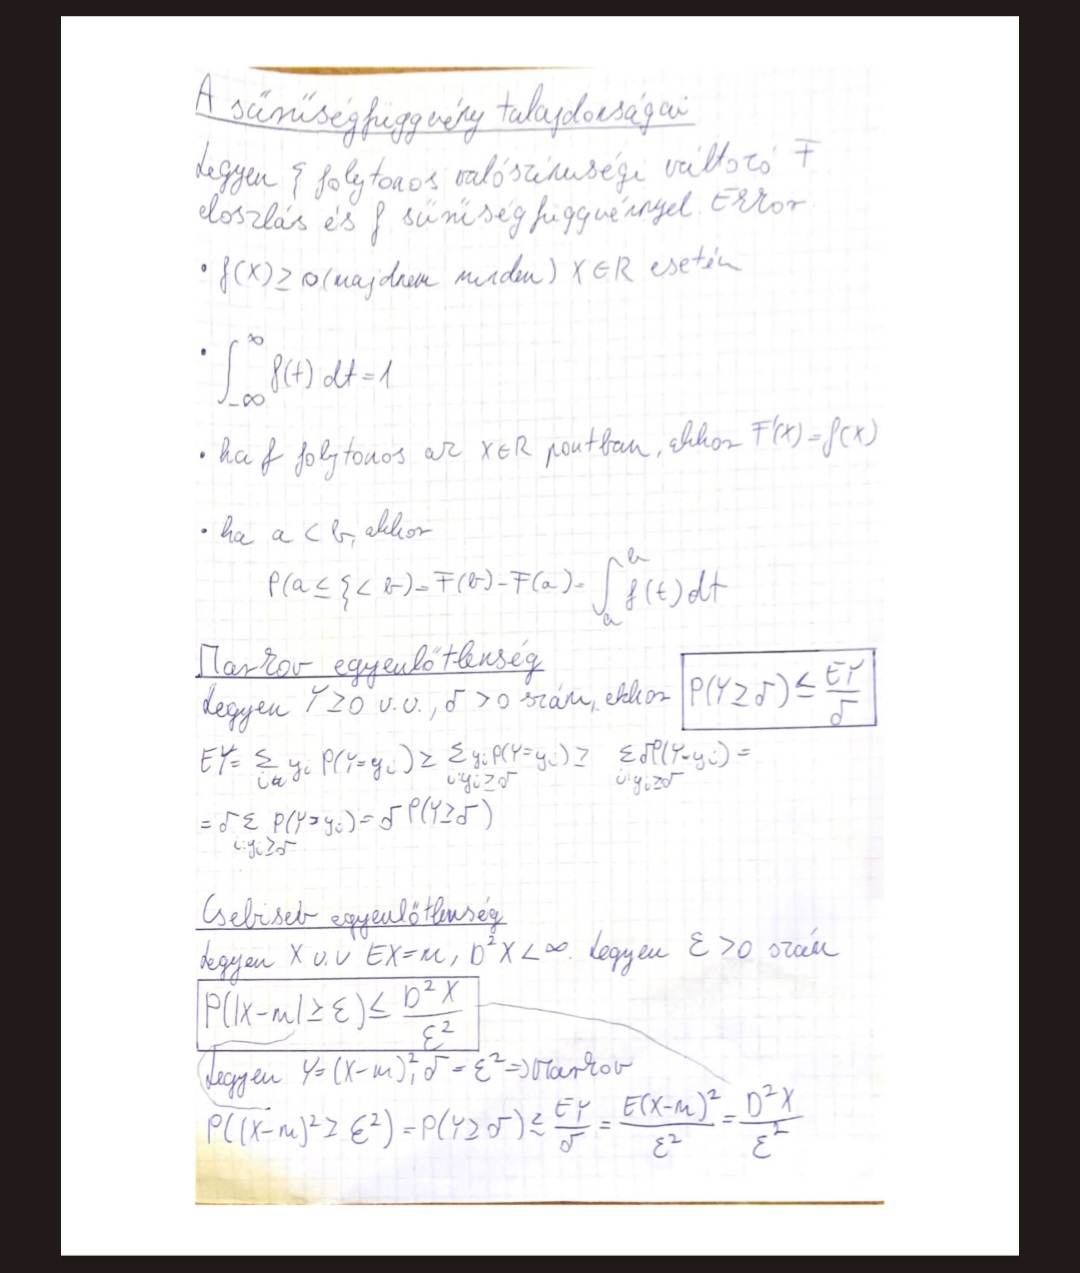 A sűrűségfüggvény tulajdonságai
Legyen ξ folytonos valószínűségi változó F
eloszlás és f sűrűségfüggvénnyel. Error
• f(x) ≥ 0 (majdnem minden) x ∈ R esetén
• ∫_{-∞}^{∞} f(t) dt = 1
• ha f folytonos az x ∈ R pontban, akkor F'(x) = f(x)
• ha a < b, akkor
P(a ≤ ξ < b) = F(b) - F(a) = ∫_a^b f(t) dt
Markov egyenlőtlenség
Legyen Y ≥ 0 v.v., δ > 0 szám, ekkor P(Y ≥ δ) ≤ EY/δ
EY = Σ y_i P(Y = y_i) ≥ Σ_{i: y_i ≥ δ} y_i P(Y = y_i) ≥ Σ_{i: y_i ≥ δ} δ P(Y = y_i) =
= δ Σ_{i: y_i ≥ δ} P(Y = y_i) = δ P(Y ≥ δ)
Csebisev egyenlőtlenség
Legyen X v.v EX = m, D²X < ∞. Legyen ε > 0 szám
P(|X - m| ≥ ε) ≤ D²X/ε²
Legyen Y = (X - m)², δ = ε² => Markov
P((X - m)² ≥ ε²) = P(Y ≥ δ) ≤ EY/δ = E(X - m)²/ε² = D²X/ε²